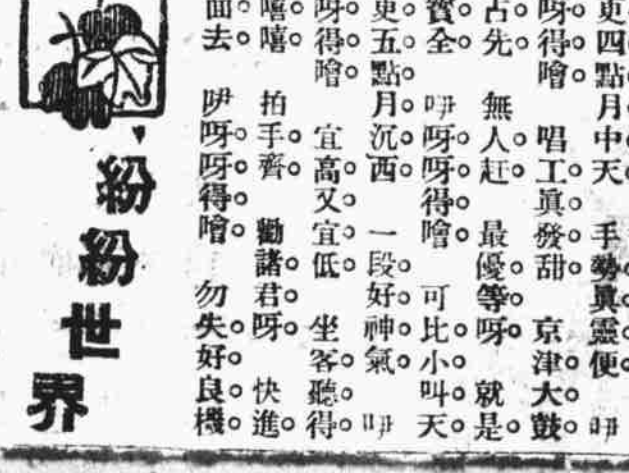 更四點月中天 手勢眞靈便 吚
呀得噲 唱工眞發甜 京津大鼓
占先 無人赶 最優等呀 就是
寳全 吚呀呀得噲 可比小叫天
更五點月沉西 一段好神氣 吚
呀得噲 宜高又宜低 坐客聽得
嘻嘻 拍手齊 勸諸君呀 快進
面去 吚呀呀得噲 勿失好良機
紛紛世界